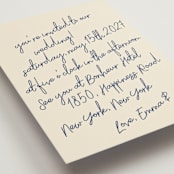 you're invited to our
wedding!
saturday, may 15th, 2027
at five o'clock in the afternoon
See you at Bonheur Hotel,
1850, Happiness Road
New York, New York
Love, Emma &